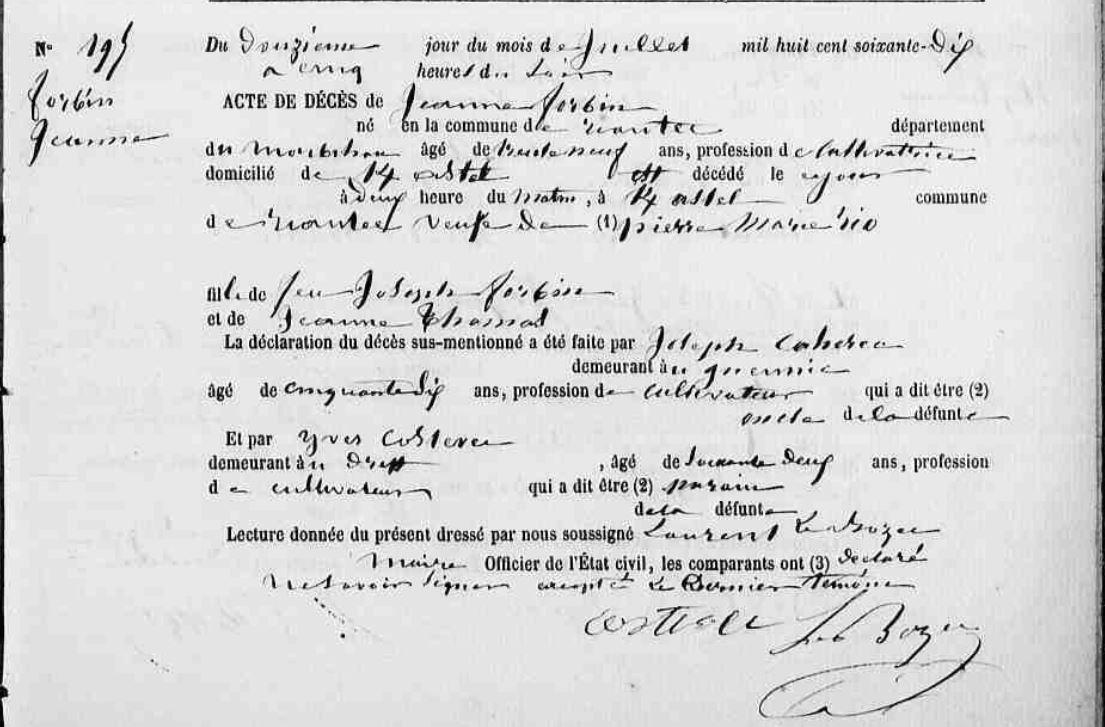 N° 195
Du Douzieme jour du mois de Juillet mil huit cent soixante-Dix
a cinq heures du soir
forbin
Jeanne
ACTE DE DÉCÈS de Jeanne forbin
né en la commune de riantec département
du morbihan âgé de trente neuf ans, profession de Cultivatrice
domicilié de est décédé le jour
à deux heure du matin, à commune
de riantec veufe De (1) pierre Marie rio
fille de feu Joseph forbin
et de Jeanne Thomas
La déclaration du décès sus-mentionné a été faite par Joseph
demeurant à
âgé de cinquante dix ans, profession de Cultivateur qui a dit être (2)
oncle de la défunte
Et par yves
demeurant à , âgé de soixante deux ans, profession
de cultivateur qui a dit être (2)
de la défunte
Lecture donnée du présent dressé par nous soussigné Laurent Le Bozec
Maire Officier de l'État civil, les comparants ont (3) declaré
ne savoir signer excepté Le Dernier temoin
Le Bozec